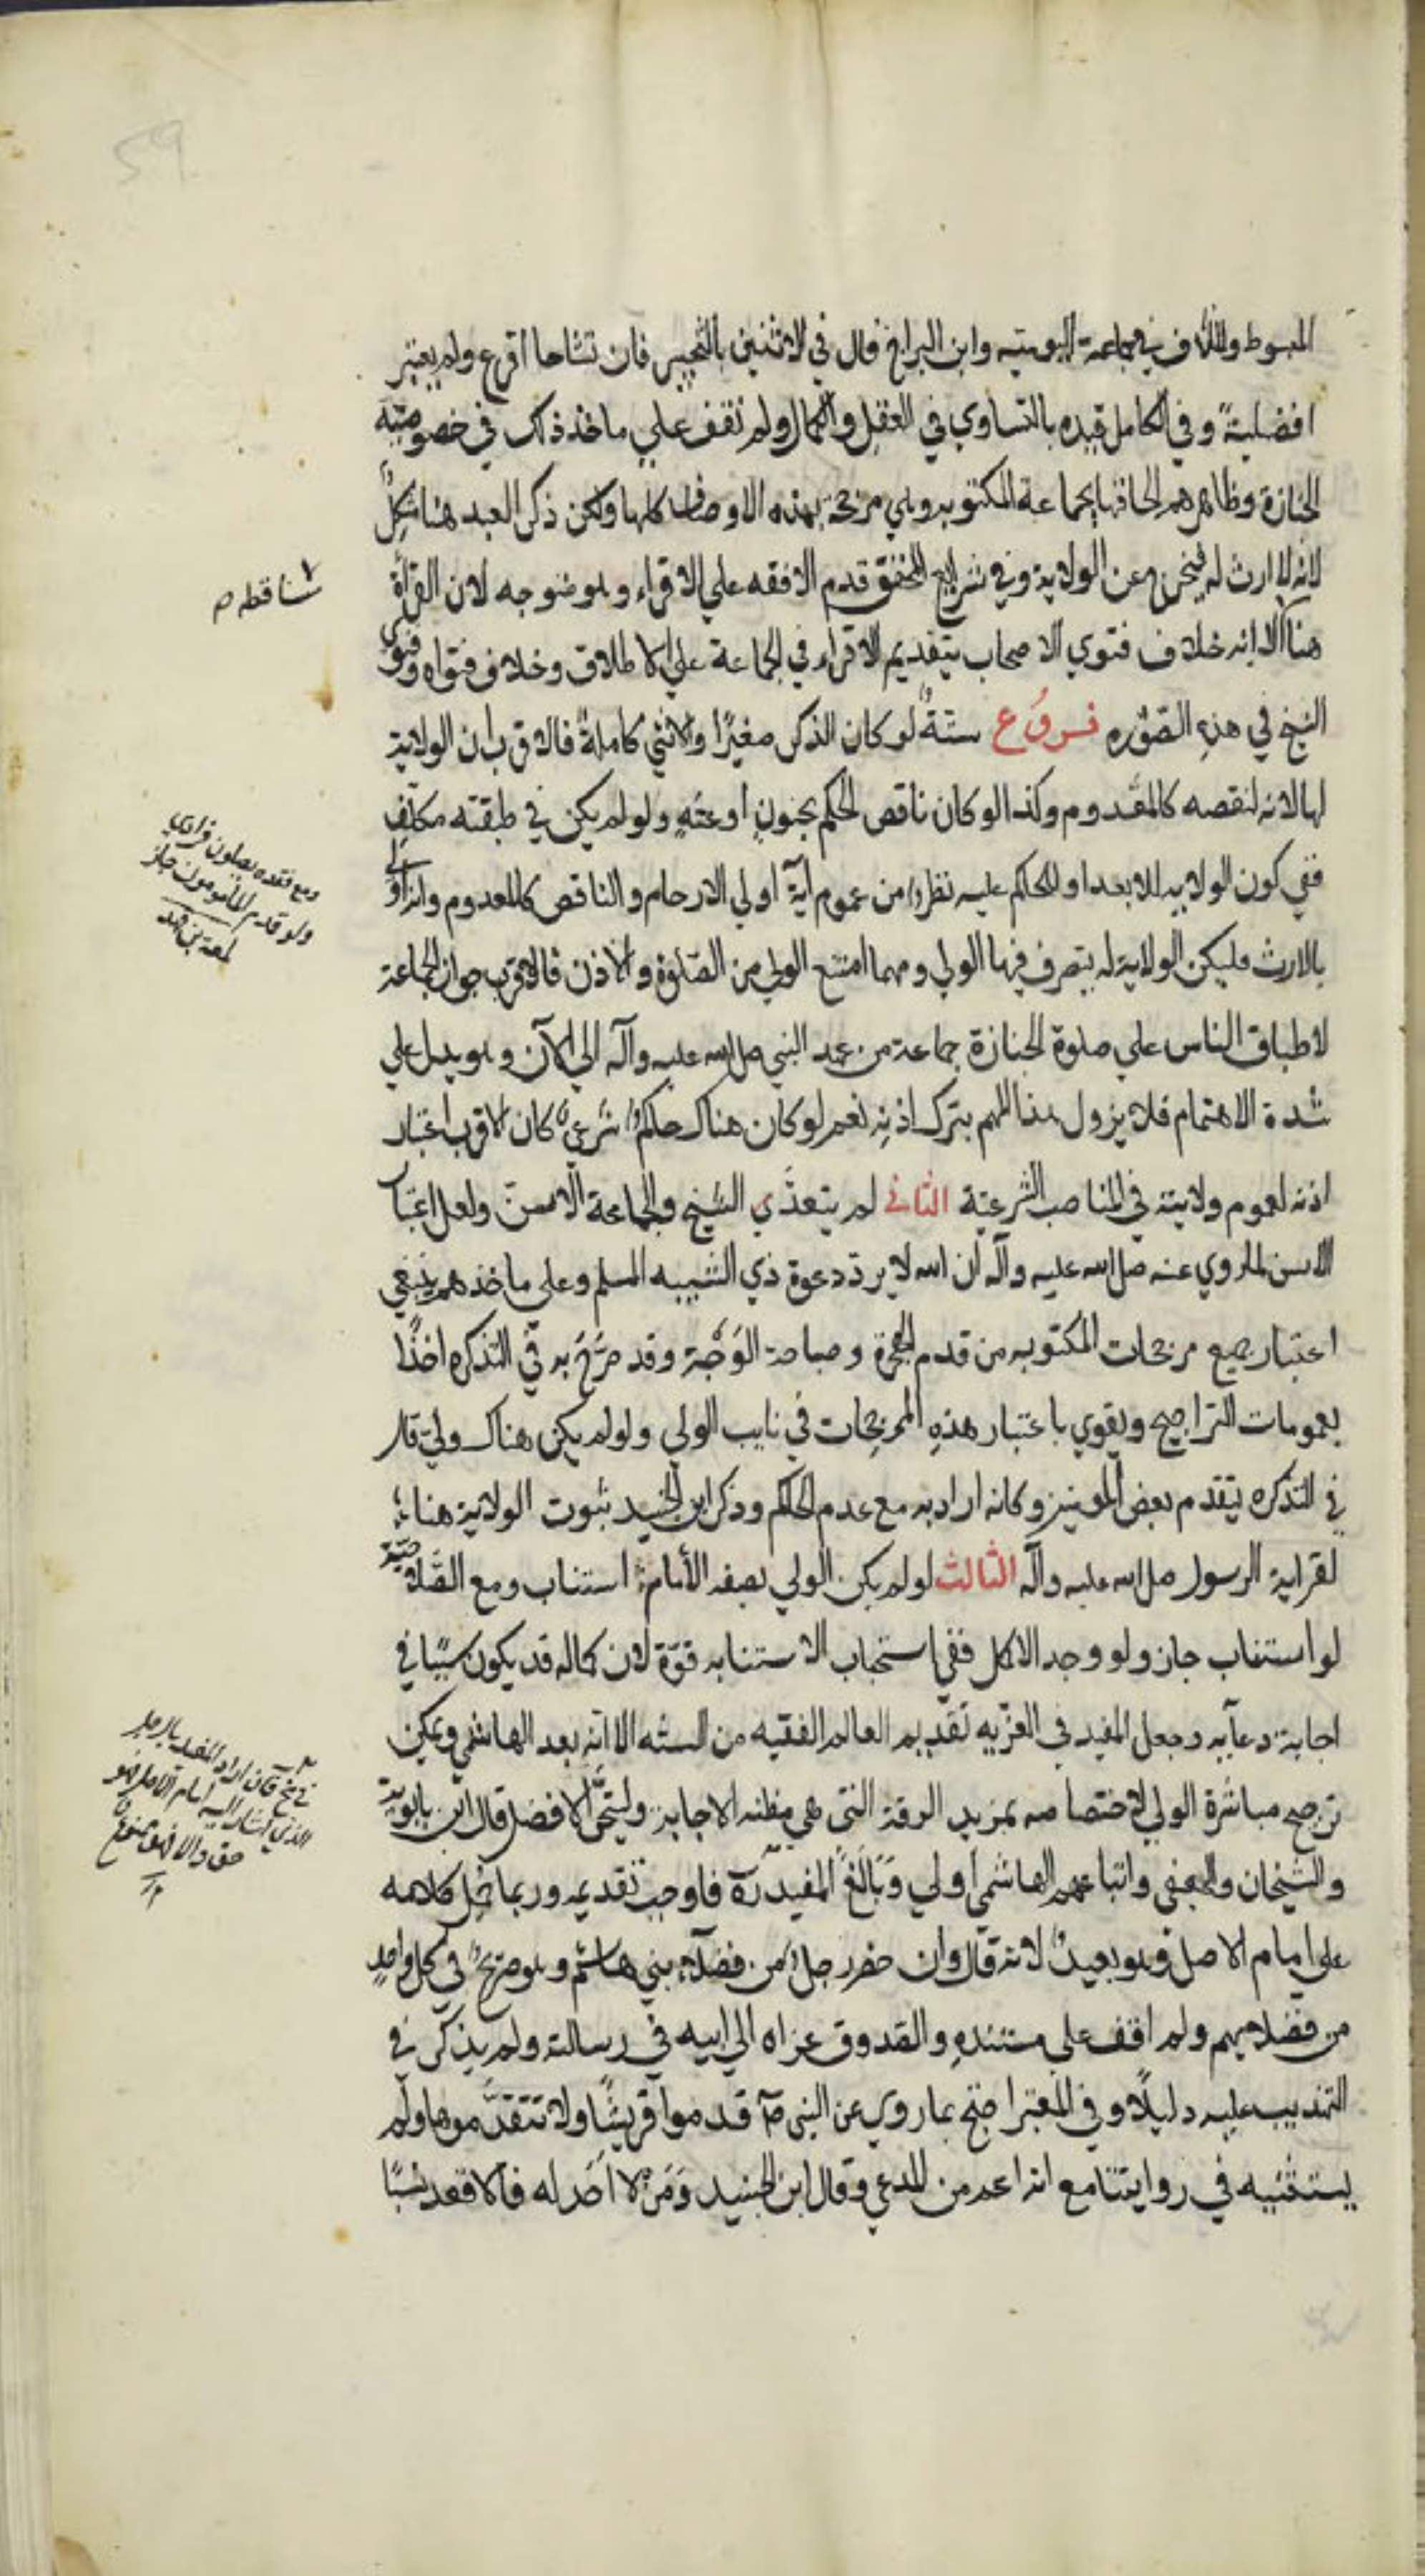 المبسوط والخلاف في جماعة اليومية وابن البراج قال في الاثنين بالتخيير فان تشاحا اقرع ولم يعتبر
افضلية وفي الكامل قيده بالتساوي في العقل والكمال ولم نقف علي ماخذ ذلك في خصوصية
الجنازة وظاهرهم الحاقها بجماعة المكتوبة وهي مرجحة بهذه الاوصاف كلها ولكن ذكر العبد هنا مشكل
لانه لا ارث له فيخرج عن الولاية وفي شرايع المحقق قدم الافقه علي الاقراء وهو متوجه لان القرأة
هنا الا انه خلاف فتوي الاصحاب بتقديم الاقراء في الجماعة علي الاطلاق وخلاف فتواه وفتوي
الشيخ في هذه الصوره فروع ستة لو كان الذكر صغيرا والانثي كاملة فالاقرب ان الولاية
لها لانه لنقصه كالمعدوم وكذا لو كان ناقص الحكم بجنون او عته ولو لم يكن في طبقته مكلف
ففي كون الولايه للابعد او للحاكم عليه نظر من عموم آية اولي الارحام والناقص كالمعدوم وانه اولي
بالارث فليكن الولاية له يتصرف فيها الولي ومهما امتنع الولي من الصلوة والاذن فالاقرب جواز الجماعة
لاطباق الناس علي صلوة الجنازة جماعة من عهد النبي صلى الله عليه وآله الي الآن وهو يدل علي
شدة الاهتمام فلا يزول هذا المهم بترك اذنه نعم لو كان هناك حاكم شرعي كان الاقرب اعتبار
اذنه لعموم ولايته في المناصب الشرعية الثاني لم يتعدي الشيخ والجماعة الاسن ولعل اعتبار
الاسن لما روي عنه صلى الله عليه وآله ان الله لا يرد دعوة ذي الشيبه المسلم وعلي ماخذهم ينبغي
اعتبار جميع مرجحات المكتوبه من قدم الهجرة وصباحة الوجه وقد صرح به في التذكره اخذا
بعمومات التراجيح ويقوي باعتبار هذه المرجحات في نايب الولي ولو لم يكن هناك ولي قال
في التذكره يتقدم بعض المومنين وكانه اراد به مع عدم الحاكم وذكر ابن الجنيد ثبوت الولاية هنا
لقرابة الرسول صلى الله عليه وآله الثالث لو لم يكن الولي بصفه الامام استناب ومع الصلاحية
لو استناب جاز ولو وجد الاكمل ففي استحباب الاستنابه قوة لان كماله قد يكون سببا في
اجابة دعآيه وجعل المفيد في العزيه تقديم العالم الفقيه من السنه الا انه بعد الهاشمي ويمكن
ترجيح مباشرة الولي لاختصاصه بمزيد الرقة التي هي مظنه الاجابه وليتحر الافضل قال ابن بابويه
والشيخان والجعفي واتباعهم الهاشمي اولي وبالغ المفيد ره فاوجب تقديمه وربما حمل كلامه
علي امام الاصل وهو بعيد لانه قال وان حضر رجل من فضلاء بني هاشم وهو صريح في كل واحد
من فضلايهم ولم اقف علي مستنده والصدوق عزاه الي ابيه في رسالته ولم يذكر في
التهذيب عليه دليلا وفي المعتبر احتج بما روي عن النبي صم قدموا قريشا ولا تتقدموها ولم
يستثنيه في روايتنا مع انه اعم من المدعي وقال ابن الجنيد ومن لا احد له فالاقعد نسبا
ساقطه ص
ومع فقده يصلون فرادي
ولو قدم المأمومون جاز